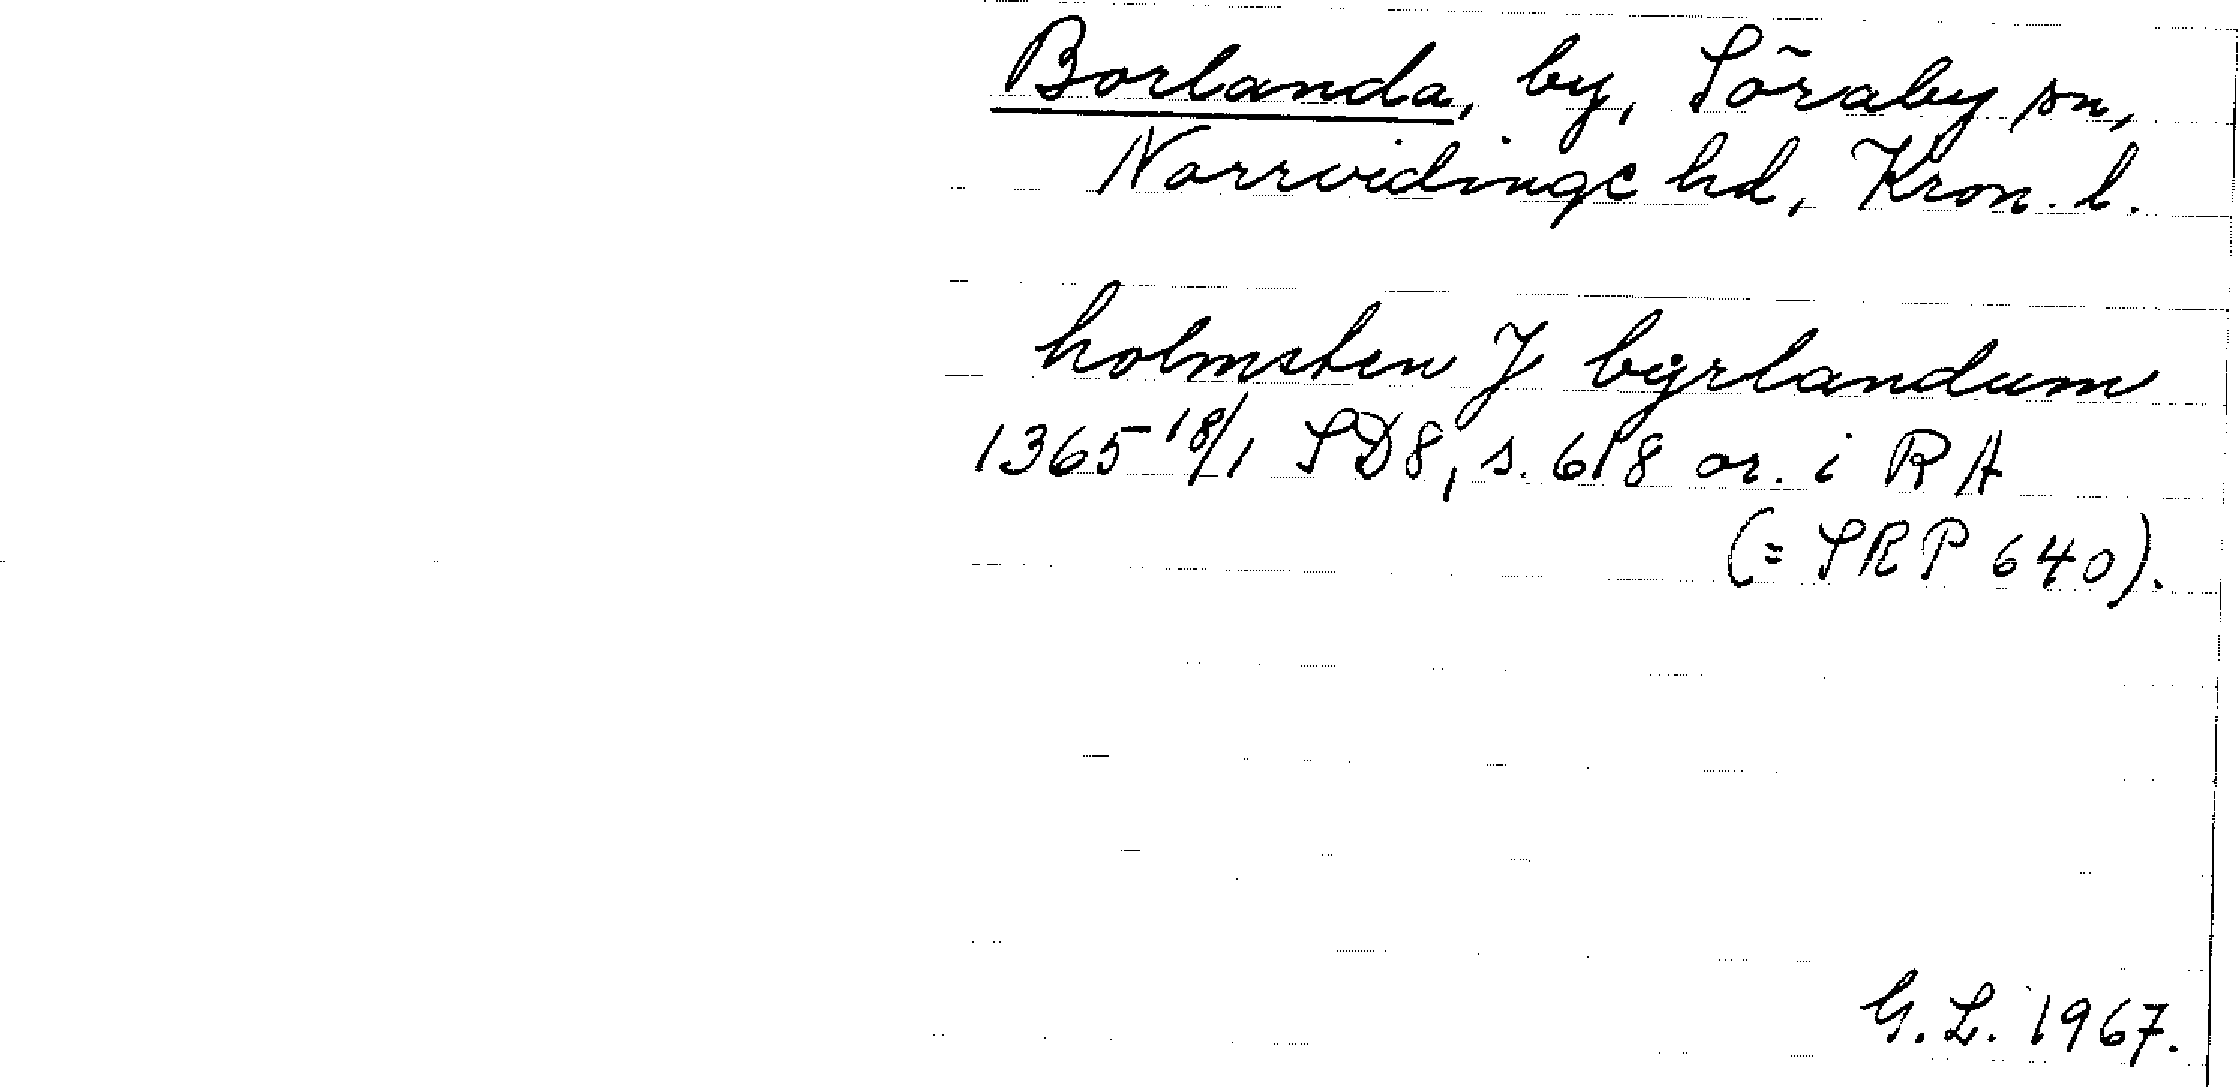 Borlanda, by, Söraby sn,
Norrvidinge hd, Kron. l.
holmsten J bẏrlandum
1365 18/1 SD8, s. 618 or. i RA
(= SRP 640).
G. L. 1967.